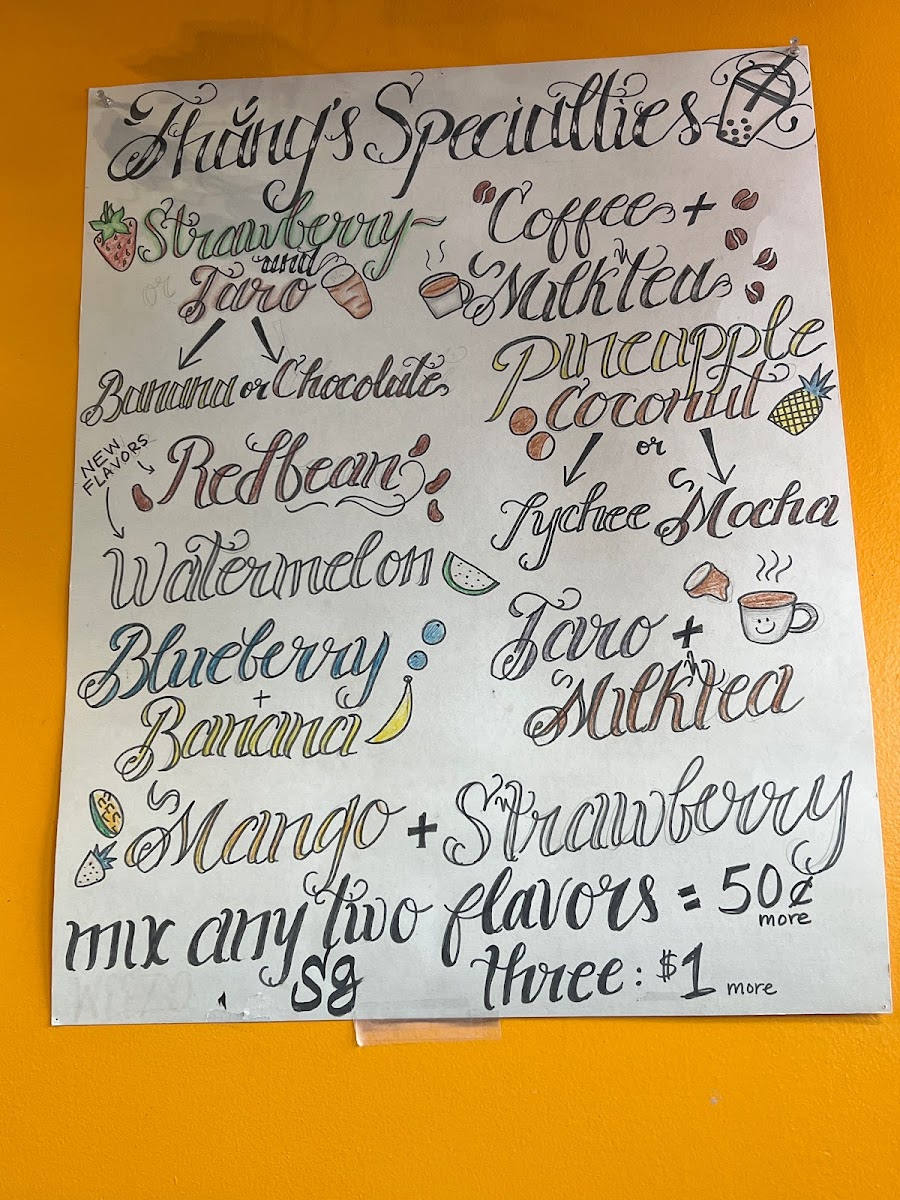 Thắng's Specialties
Strawberry
and
or Taro
Banana or Chocolate
NEW
FLAVORS
Redbean
Watermelon
Blueberry
+
Banana
Coffee +
Milktea
Pineapple
Coconut
or
Lychee Mocha
Taro +
Milktea
Mango + Strawberry
mix any two flavors = 50¢
more
three: $1 more
Sg